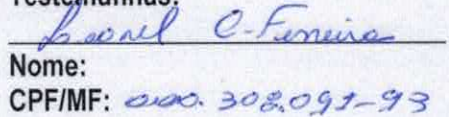 Testemunhas:
Leonel C. Ferreira
Nome:
CPF/MF: 000.308.091-93